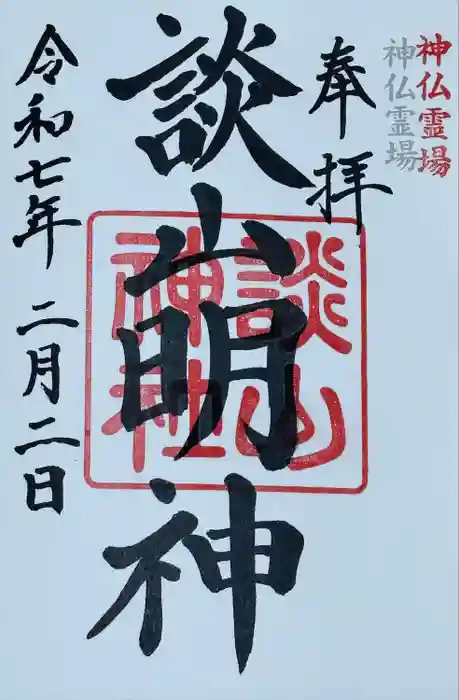 神仏霊場
神仏霊場
奉拝
談山明神
談山神社
令和七年 二月二日